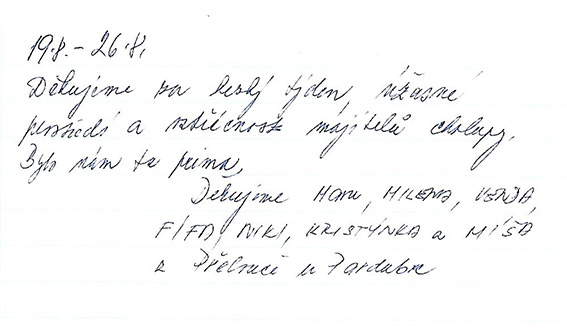 19.8. - 26.8.
Děkujeme za hezký týden, úžasné
prostředí a vstřícnost majitelů chalupy.
Bylo nám tu prima,
Děkujeme HANA, MILENA, VENDA,
FIFA, NIKI, KRISTÝNKA a MÍŠA
z Přelouče u Pardubic